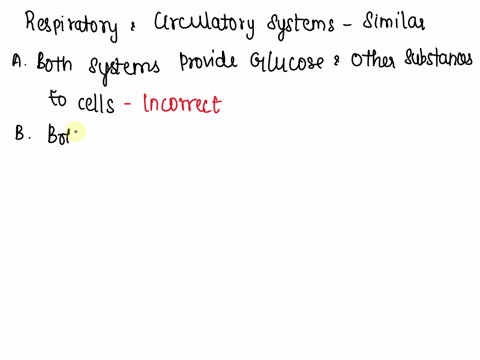 Respiratory & Circulatory Systems - Similar
A. Both Systems Provide Glucose & Other Substances
to cells - Incorrect
B. Bot